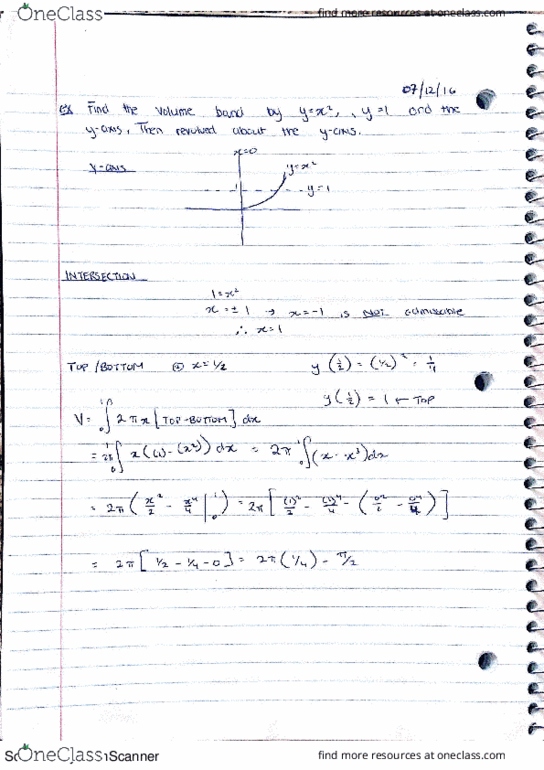 OneClass
find more resources at oneclass.com
07/12/16
Ex Find the volume band by y=x², y=1 and the
y-axis, Then revolved about the y-axis.
x=0
y-axis
y=x²
1
y=1
INTERSECTION
1=x²
x=±1 → x=-1 is Not admissable
∴ x=1
TOP/BOTTOM @ x=1/2 y(1/2) = (1/2)² = 1/4
y(1/2) = 1 ← TOP
V = ∫₀¹ 2πx[TOP-BOTTOM]dx
= 2π ∫₀¹ x((1)-(x²))dx = 2π ∫₀¹ (x-x³)dx
= 2π(x²/2 - x⁴/4 |₀¹) = 2π[(1)²/2 - (1)⁴/4 - (0²/2 - 0⁴/4)]
= 2π[1/2 - 1/4 - 0] = 2π(1/4) = π/2
OneClass
Scanner
find more resources at oneclass.com